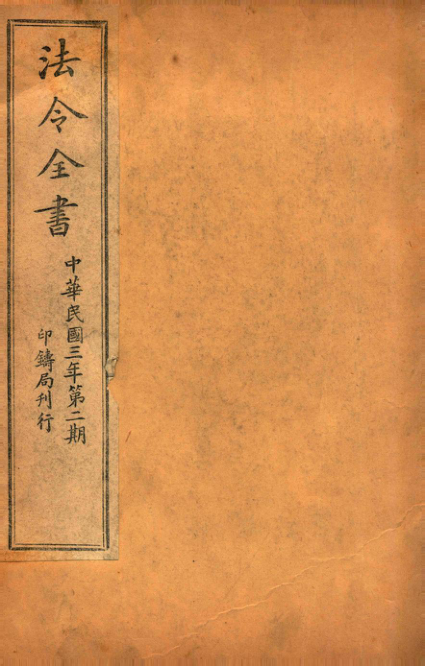 法令全書
中華民國三年第二期
印鑄局刊行